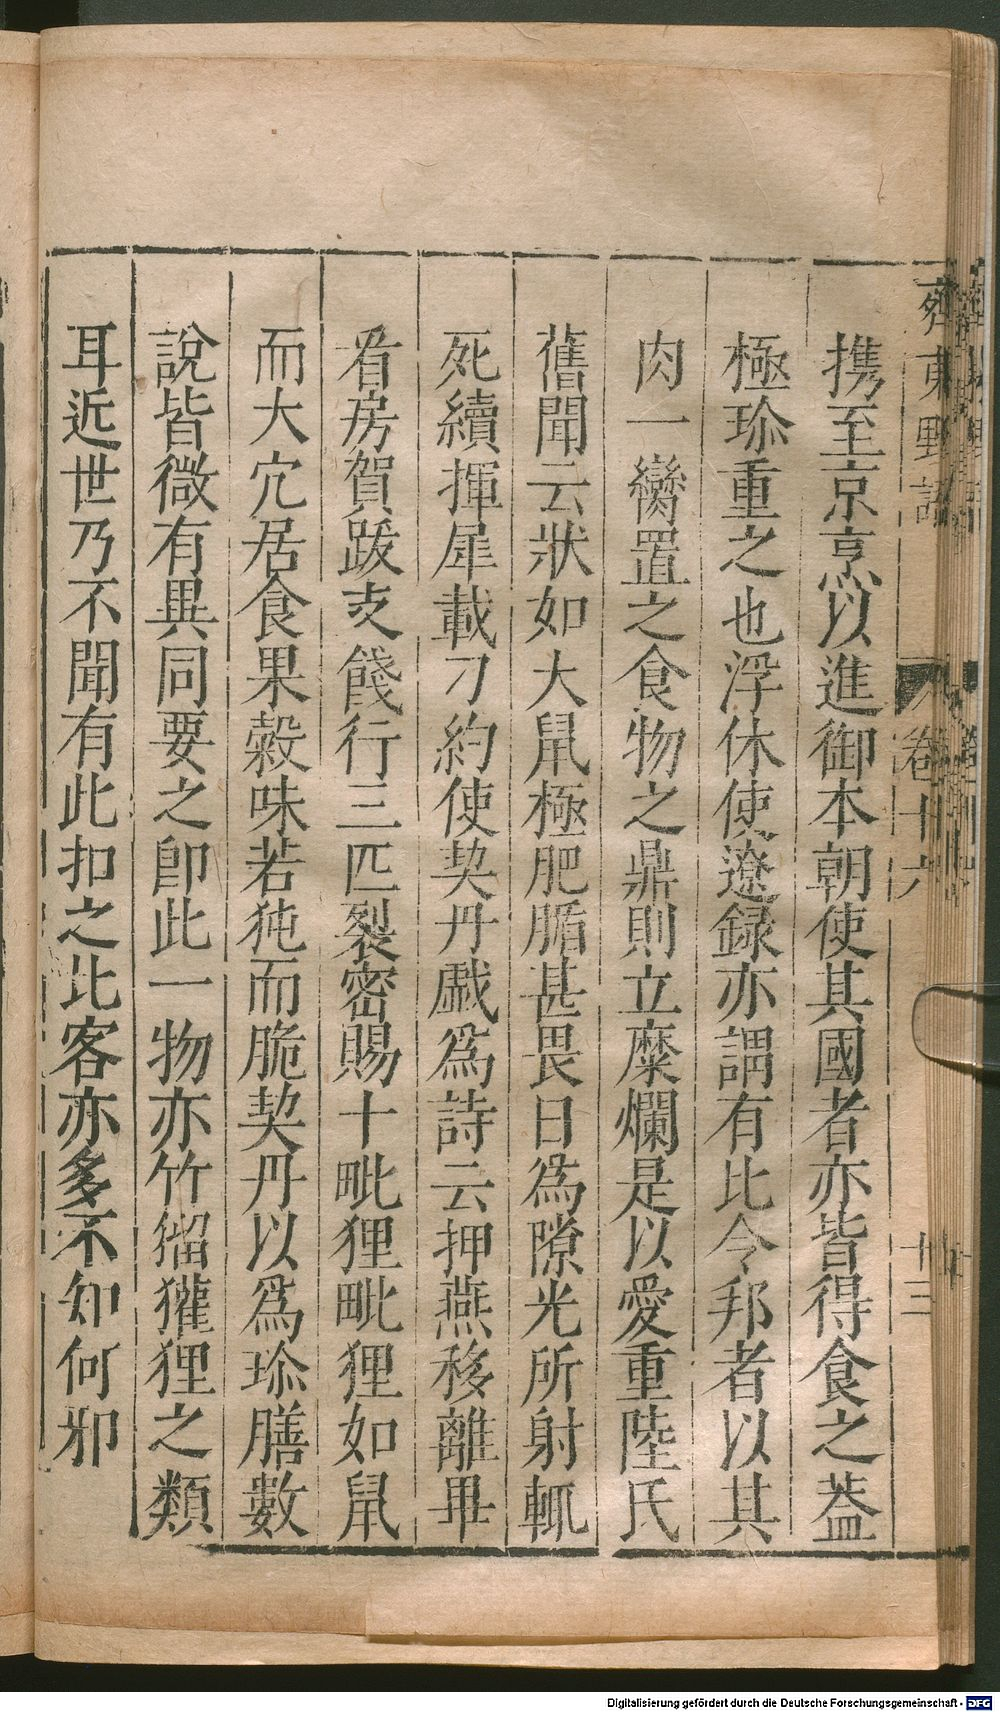 齊東野語 卷十六 十三
携至京烹以進御本朝使其國者亦皆得食之葢
極珎重之也浮休使遼録亦謂有比令邦者以其
肉一臠置之食物之鼎則立糜爛是以愛重陸氏
舊聞云狀如大鼠極肥腯甚畏日為隙光所射輒
死續揮犀載刁約使契丹戯為詩云押燕移離畢
看房賀跋支餞行三匹裂密賜十毗狸毗狸如鼠
而大穴居食果榖味若㹠而脆契丹以為珎膳數
說皆微有異同要之即此一物亦竹䶉獾狸之類
耳近世乃不聞有此扣之北客亦多不知何邪
Digitalisierung gefördert durch die Deutsche Forschungsgemeinschaft - DFG